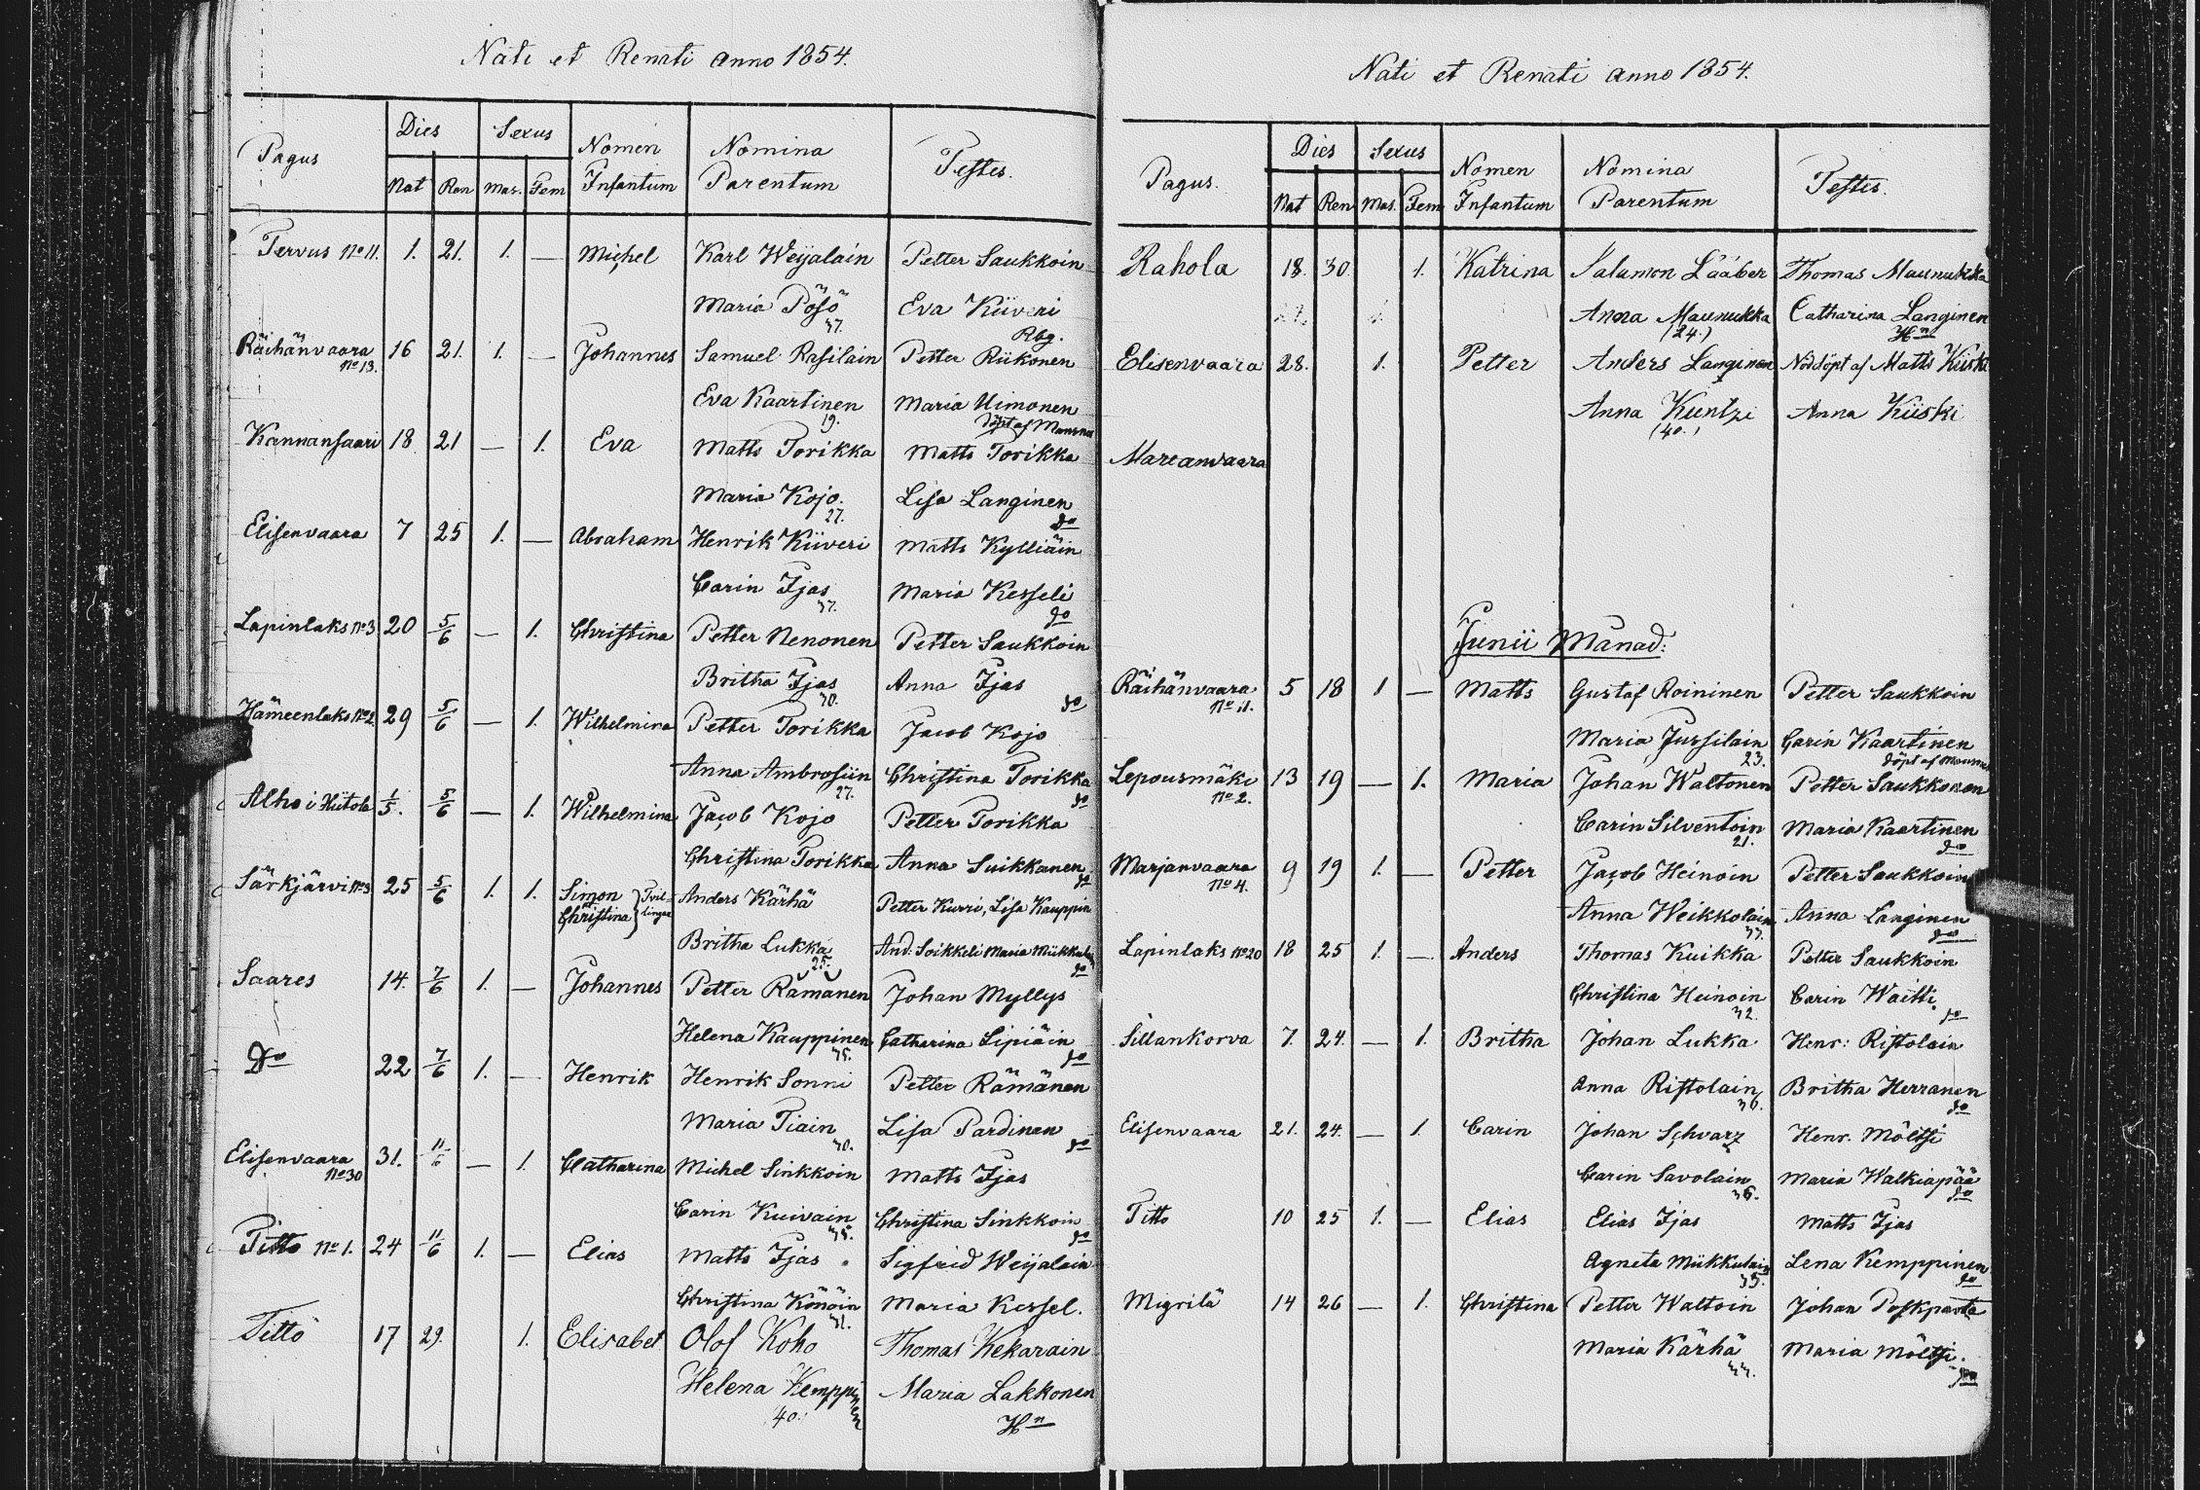 Nati et Renati anno 1854.
Pagus Dies Sexus Nomen Nomina Testes.
Nat Ren Mas. Fem Infantum Parentum
Tervus No 11. 1. 21. 1. — Michel Karl Weijalain Petter Saukkoin
Maria Pösö Eva Kiiveri
37. Rbg.
Räihänvaara 16 21. 1. — Johannes Samuel Rasilain Petter Riikonen
No 13.
Eva Kaartinen Maria Uimonen
19. Döpt af
Kannansaari 18 21 — 1. Eva Matts Torikka Matts Torikka
Maria Kojo. Lisa Langinen
27. do
Elisenvaara 7 25 1. — Abraham Henrik Kiiveri Matts Kylliäin
Carin Ijas Maria Kesseli
37. do
Lapinlaks No 3 20 5/6 — 1. Christina Petter Nenonen Petter Saukkoin
Britha Ijas Anna Ijas
30. do
Hämeenlaks No 2 29 5/6 — 1. Wilhelmina Petter Torikka Jacob Kojo
Anna Ambrosiin Christina Torikka
27. do
Alho i Hiitola 1/5. 5/6 — 1. Wilhelmina Jacob Kojo Petter Torikka
Christina Torikka Anna Suikkanen
do
Särkjärvi No 3 25 5/6 1. 1. Simon Christina } Tvillingar Anders Kärhä Petter Kurri, Lisa Kauppin
Britha Lukka And: Soikkeli Maria
25. do
Saares 14. 7/6 1. — Johannes Petter Rämänen Johan Myllys
Helena Kauppinen Catharina Lipiäin
35. do
Do 22 7/6 1. — Henrik Henrik Sonni Petter Rämänen
Maria Tiain Lisa Pardinen
30. do
Elisenvaara 31. 11/6 — 1. Catharina Michel Sinkkoin Matts Ijas
No 30
Carin Kuivain Christina Sinkkoin
35. do
Titto No 1. 24 11/6 1. — Elias Matts Ijas Sigfrid Weijalain
Christina Könöin Maria Kessel.
31.
Titto 17 29. 1. Elisabet Olof Koho Thomas Kekarain
Helena Kemppinen Maria Lakkonen
40. Hn
Nati et Renati anno 1854.
Pagus. Dies Sexus Nomen Nomina Testes.
Nat Ren Mas. Fem Infantum Parentum
Rahola 18. 30. 1. Katrina Salamon Lääber Thomas Maunukka
Anna Maunukka Catharina Langinen
(24.) Hn
Elisenvaara 28. 1. Petter Anders Langinen Nöddöpt af Matts Kiiski
Anna Kuntzi Anna Kiiski
(40.)
Marianvaara
Junii Månad:
Räihänvaara 5 18 1 — Matts Gustaf Roininen Petter Saukkoin
No 11.
Maria Jussilain Carin Kaartinen
23. döpt af
Lepousmäki 13 19 — 1. Maria Johan Waltonen Petter Saukkonen
No 2.
Carin Silventoin Maria Kaartinen
21. do
Marjanvaara 9 19 1. — Petter Jacob Heinoin Petter Saukkoin
No 4.
Anna Weikkolain Anna Langinen
33. do
Lapinlaks No 20 18 25 1. — Anders Thomas Kuikka Petter Saukkoin
Christina Heinoin Carin Waitti
32. do
Sillankorva 7. 24. — 1. Britha Johan Lukka Henr: Ristolain
Anna Ristolain Britha Herranen
36. do
Elisenvaara 21. 24. — 1. Carin Johan Schvarz Henr. Möltsi
Carin Savolain Maria Walkiapää
36. do
Titto 10 25 1. — Elias Elias Ijas Matts Ijas
Agneta Miikkulain Lena Kemppinen
35. do
Migrilä 14 26 — 1. Christina Petter Waltoin Johan Poskparta
Maria Kärhä Maria Möltsi.
33. do